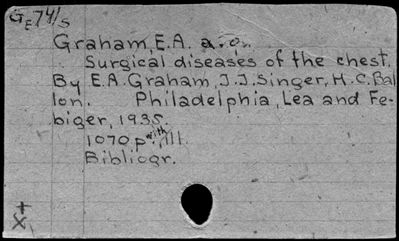 GE741s
Graham, E.A. a.o.
Surgical diseases of the chest.
By E.A. Graham, J.J. Singer, H.C. Bal
lon. Philadelphia, Lea and Fe-
biger, 1935.
1070 p. with ill.
Bibliogr.
x+